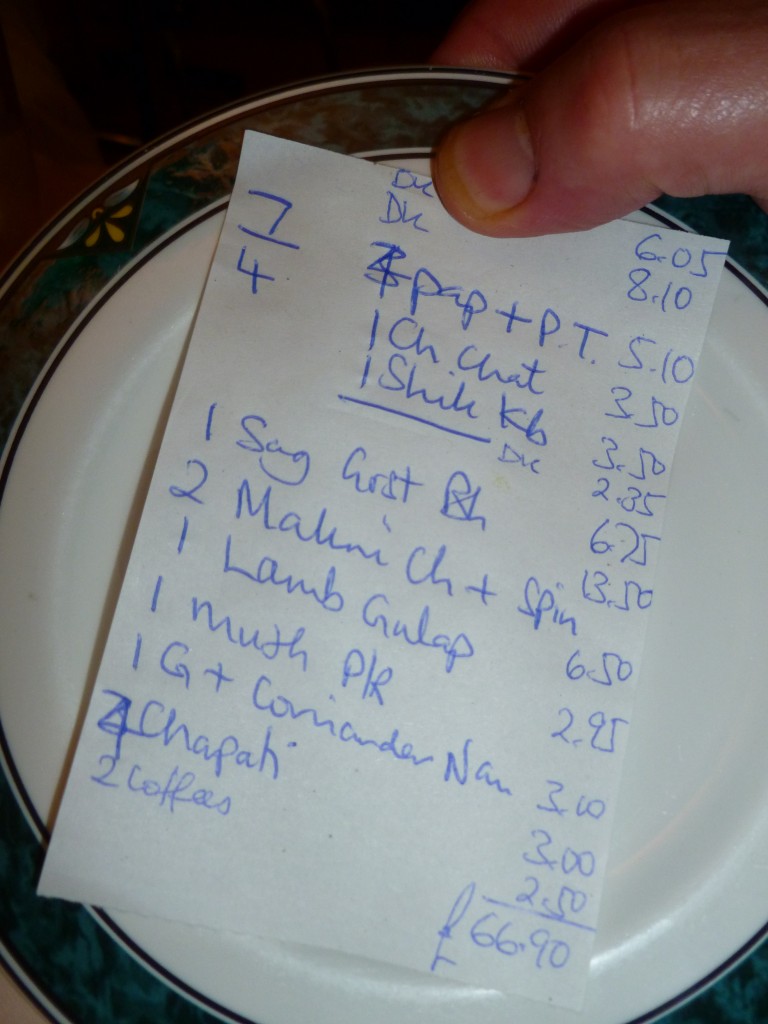 Dk 6.05
7 Dk 8.10
4 pap + P.T. 5.10
1 Ch. Chat 3.50
1 Shik Kb 3.50
Dk 2.35
1 Sag Gost 6.75
2 Makni Ch + Spin 13.50
1 Lamb Gulap 6.50
1 Mush P/R 2.95
1 G + Coriander Nan 3.00
Chapati 3.00
2 Coffees 2.50
£66.90